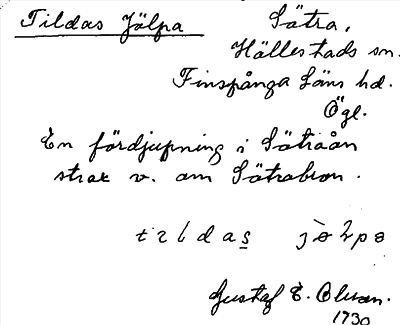 Tildas Jölpa Sätra,
Hällestads sn.
Finspånga läns hd.
Ögl.
En fördjupning i Sätraån
strax v. om Sätrabron.
Gustaf E. Olsson.
1730